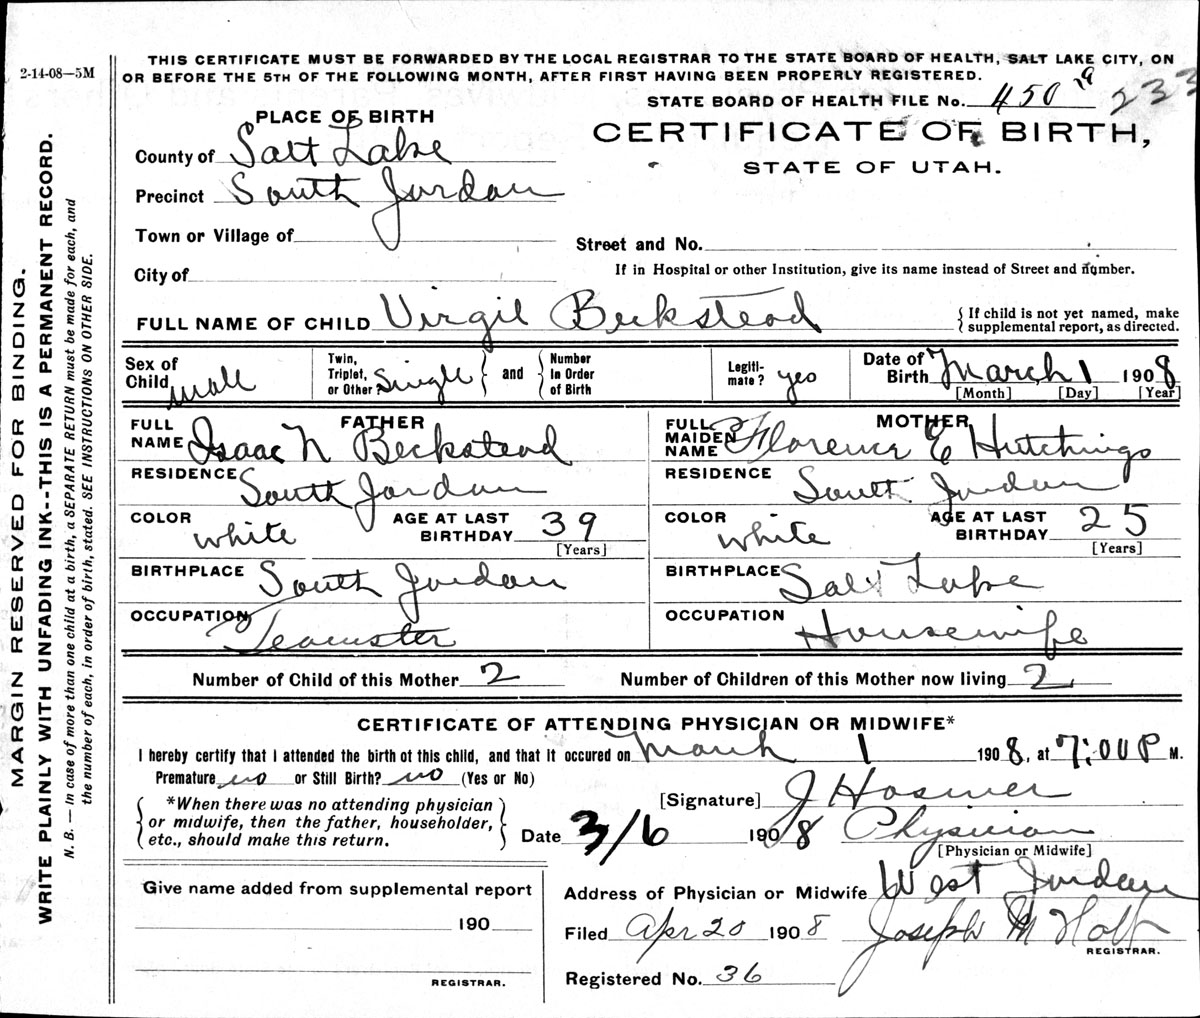 2-14-08—5M
THIS CERTIFICATE MUST BE FORWARDED BY THE LOCAL REGISTRAR TO THE STATE BOARD OF HEALTH, SALT LAKE CITY, ON
OR BEFORE THE 5TH OF THE FOLLOWING MONTH, AFTER FIRST HAVING BEEN PROPERLY REGISTERED.
STATE BOARD OF HEALTH FILE No. 450 29 233
PLACE OF BIRTH
CERTIFICATE OF BIRTH,
STATE OF UTAH.
County of Salt Lake
Precinct South Jordan
Town or Village of
Street and No.
City of
If in Hospital or other Institution, give its name instead of Street and number.
FULL NAME OF CHILD Virgil Beckstead
{ If child is not yet named, make
supplemental report, as directed.
Sex of Child male
Twin, Triplet, or Other? Single } and { Number In Order of Birth
Legiti-mate? yes
Date of Birth March 1 1908
[Month] [Day] [Year]
FATHER
FULL NAME Isaac N Beckstead
RESIDENCE South Jordan
COLOR white AGE AT LAST BIRTHDAY 39
[Years]
BIRTHPLACE South Jordan
OCCUPATION Teamster
MOTHER
FULL MAIDEN NAME Florence E Hutchings
RESIDENCE South Jordan
COLOR white AGE AT LAST BIRTHDAY 25
[Years]
BIRTHPLACE Salt Lake
OCCUPATION Housewife
Number of Child of this Mother 2
Number of Children of this Mother now living 2
CERTIFICATE OF ATTENDING PHYSICIAN OR MIDWIFE*
I hereby certify that I attended the birth of this child, and that it occured on March 1 1908, at 7:00 P M.
Premature no or Still Birth? no (Yes or No)
{ *When there was no attending physician
or midwife, then the father, householder,
etc., should make this return. }
[Signature] J Hosmer
Date 3/6 1908 Physician
[Physician or Midwife]
Give name added from supplemental report
190
REGISTRAR.
Address of Physician or Midwife West Jordan
Filed Apr 20 1908 Joseph M Holt
REGISTRAR.
Registered No. 36
MARGIN RESERVED FOR BINDING.
WRITE PLAINLY WITH UNFADING INK--THIS IS A PERMANENT RECORD.
N. B. — In case of more than one child at a birth, a SEPARATE RETURN must be made for each, and
the number of each, in order of birth, stated. SEE INSTRUCTIONS ON OTHER SIDE.